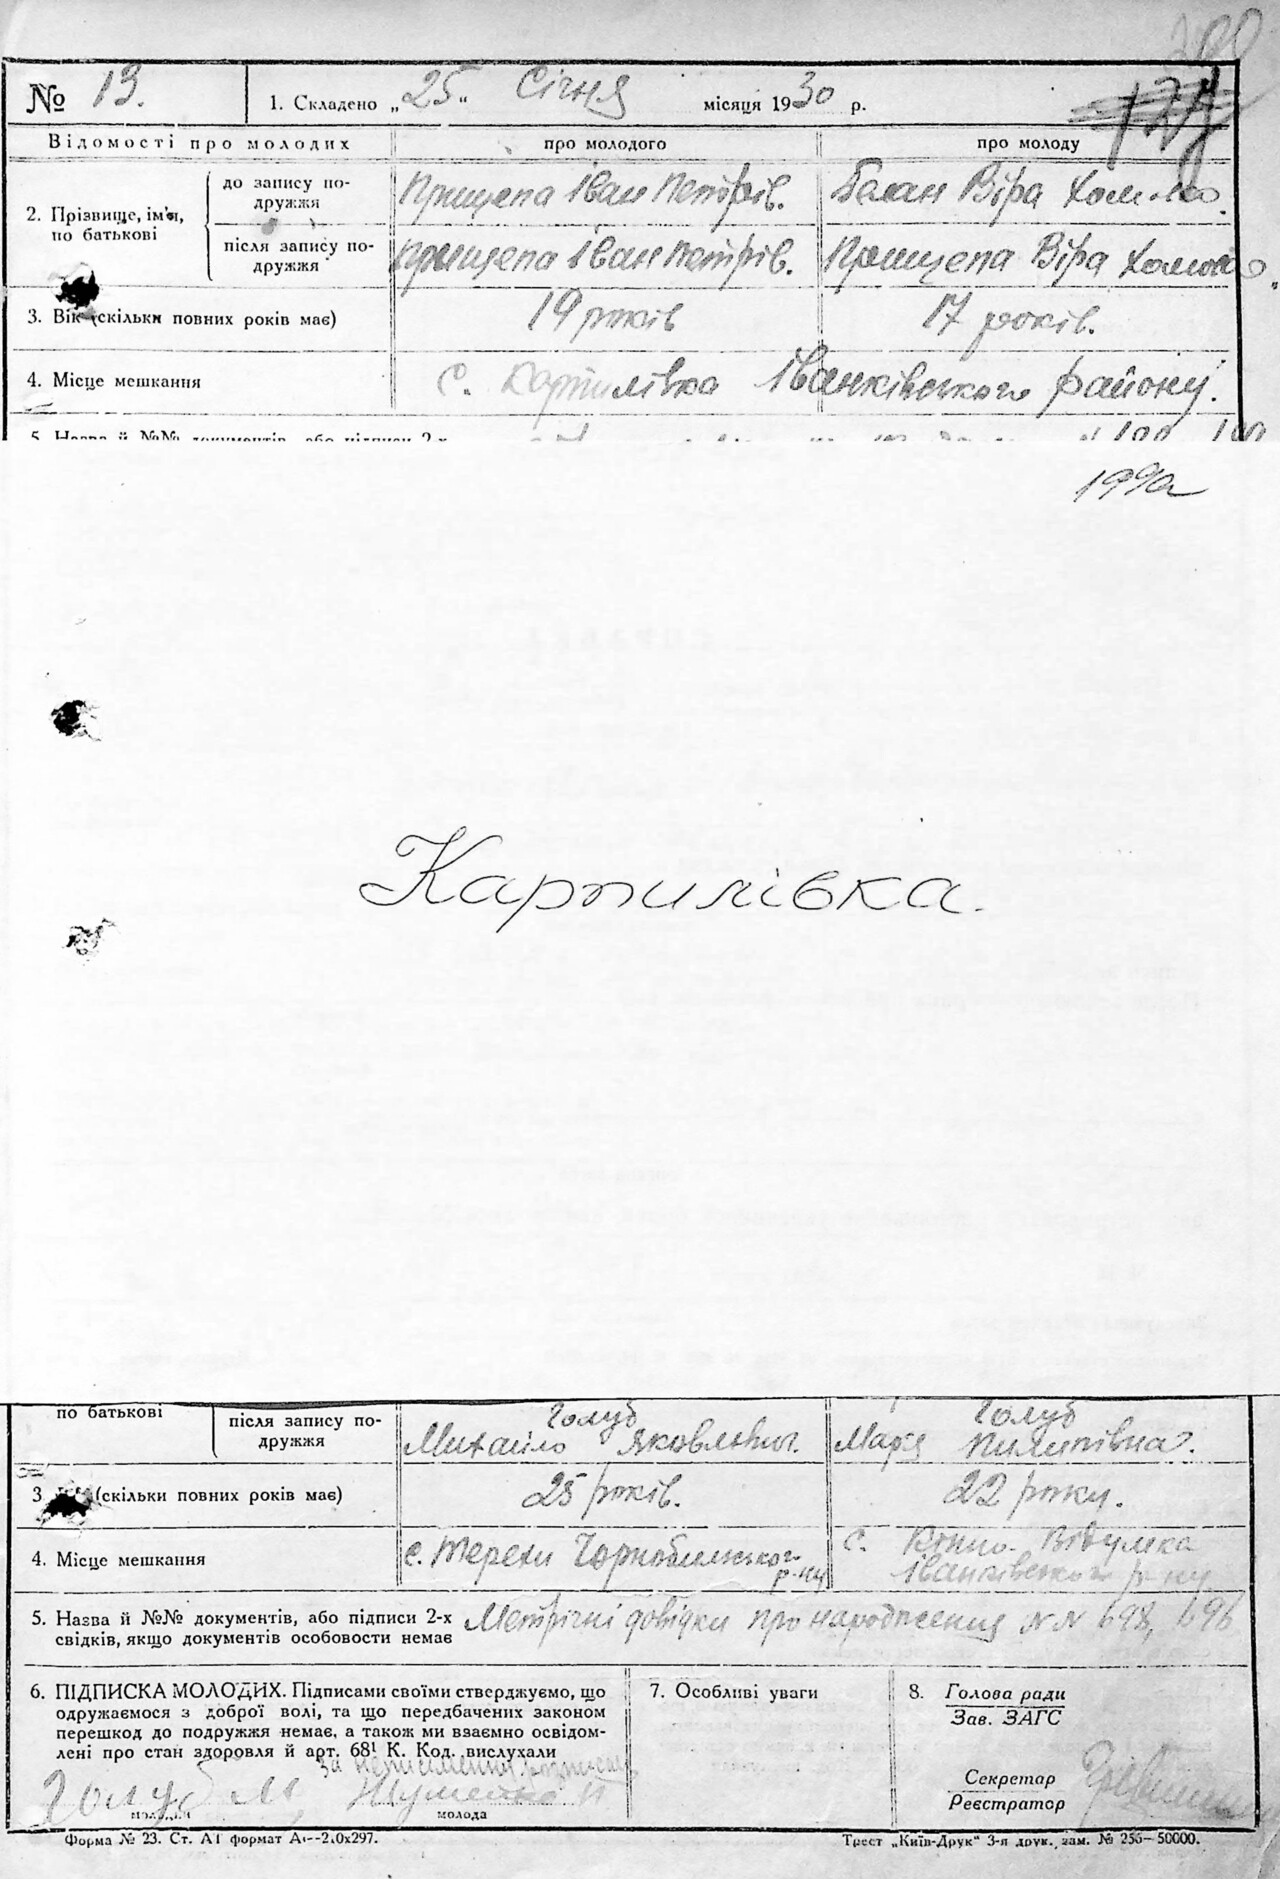 № 13. 1. Складено „25“ Січня місяця 1930 р.
Відомості про молодих про молодого про молоду
2. Прізвище, ім'я, по батькові до запису подружжя Прищепа Іван Петрів. Балан Віра
після запису подружжя Прищепа Іван Петрів. Прищепа Віра
3. Вік (скільки повних років має) 19 років 17 років.
4. Місце мешкання с. Карпилівка Іванківського району.
5. Назва й №№ документів, або підписи 2-х
199а
Карпилівка.
по батькові після запису подружжя Голуб Михайло Яковлевич. Голуб Марія Пилипівна.
3 (скільки повних років має) 25 років. 22 роки.
4. Місце мешкання с. Терехи Чорнобильського р-ну с. Відумка Іванківського р-ну
5. Назва й №№ документів, або підписи 2-х
свідків, якщо документів особовости немає Метричні довідки про народження NN 698, 696
6. ПІДПИСКА МОЛОДИХ. Підписами своїми стверджуємо, що
одружаємося з доброї волі, та що передбачених законом
перешкод до подружжя немає, а також ми взаємно освідом-
лені про стан здоровля й арт. 68¹ К. Код. вислухали
за
Голуб М
молодий молода
7. Особливі уваги
8. Голова ради
Зав. ЗАГС
Секретар
Реєстратор
Форма № 23. Ст. А1 формат А4—210х297. Трест „Київ-Друк“ 3-я друк. зам. № 256—50000.